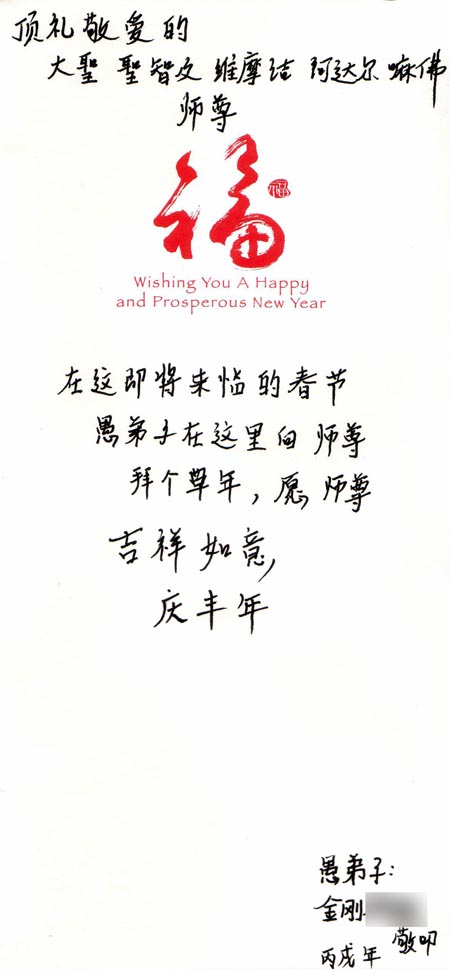 顶礼敬爱的
大聖 聖智文 维摩诘 阿达尔 嘛佛
师尊
福
福
Wishing You A Happy
and Prosperous New Year
在这即将来临的春节
愚弟子在这里向 师尊
拜个草年，愿 师尊
吉祥如意，
庆丰年
愚弟子：
金刚
敬叩
丙戌年